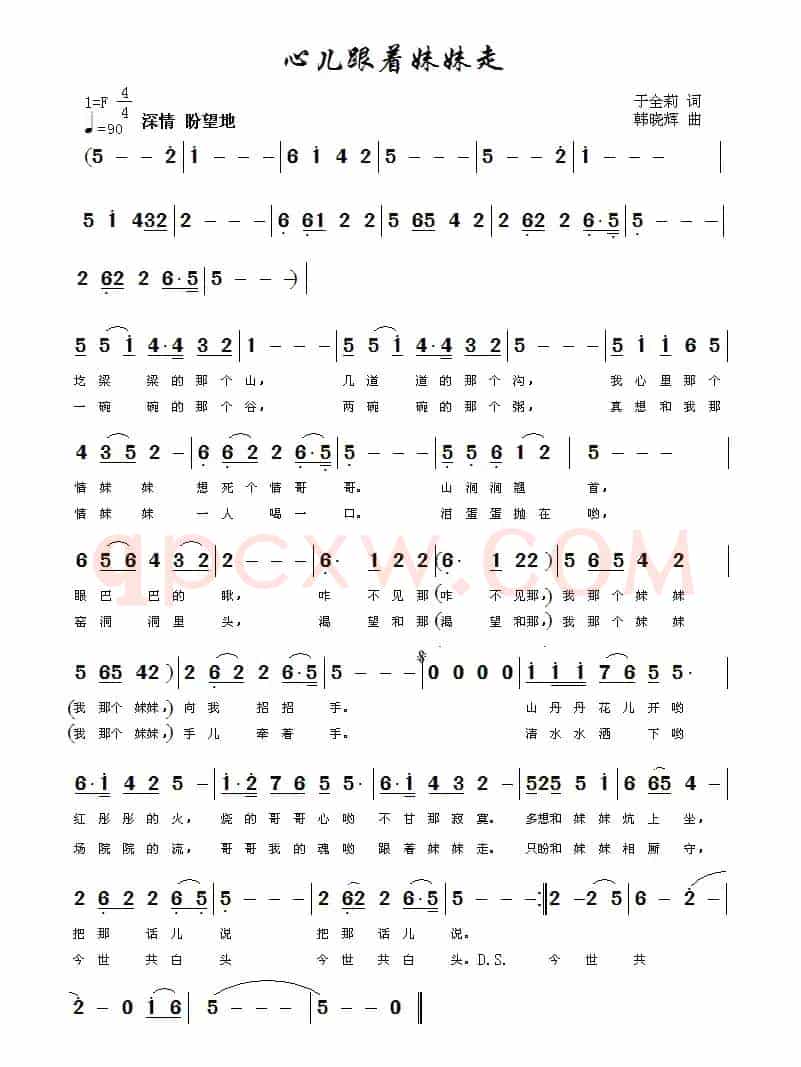 心儿跟着妹妹走
1=F 4/4
于全莉 词
♩=90 深情 盼望地
韩晓辉 曲
(5 - - 2̇ | 1̇ - - - | 6 1̇ 4 2 | 5 - - - | 5 - - 2̇ | 1̇ - - - |
5 1̇ 432 | 2 - - - | 6̣ 6̣1 2 2 | 5 65 4 2 | 2 6̣2 2 6̣·5̣ | 5̣ - - - |
2 6̣2 2 6̣·5̣ | 5̣ - - -) |
5 5 1̇ 4·4 3 2 | 1 - - - | 5 5 1̇ 4·4 3 2 | 5̣ - - - | 5 1̇ 1̇ 6 5 |
圪梁 梁的那个山, 几道 道的那个沟, 我心里那个
一碗 碗的那个谷, 两碗 碗的那个粥, 真想和我那
4 3 5 2 - | 6̣ 6̣ 2 2 6̣·5̣ | 5̣ - - - | 5̣ 5̣ 6̣ 1 2 | 5 - - - |
情妹 妹 想死个情哥 哥。 山涧涧翘 首,
情妹 妹 一人 喝一 口。 泪蛋蛋抛在 哟,
6 5 6 4 3 2 | 2 - - - | 6̣· 1 2 2 (6̣· 1 22) | 5 6 5 4 2
眼巴 巴的 瞅, 咋 不见那(咋 不见那,)我那个妹妹
窑洞 洞里 头, 渴 望和那(渴 望和那,)我那个妹妹
5 65 42) | 2 6̣ 2 2 6̣·5̣ | 5̣ - - - | 0 0 0 0 | 1̇ 1̇ 1̇ 7 6 5 5·
(我 那个 妹妹,)向我 招招 手。 山丹丹花儿开哟
(我 那个 妹妹,)手儿 牵着 手。 清水水洒 下哟
6·1̇ 4 2 5 - | 1̇·2̇ 7 6 5 5 | 6·1̇ 4 3 2 - | 525 5 1̇ | 6 65 4 - |
红彤彤的火, 烧的哥哥心哟 不甘那寂寞。多想和妹妹炕上坐,
场院院的流, 哥哥我的魂哟 跟着妹妹走。只盼和妹妹相厮守,
2 6̣ 2 2 6̣ 5̣ | 5̣ - - - | 6̣2 2 6̣·5̣ | 5̣ - - - :| 2 -2 5 | 6 - 2̇ -
把那 话儿 说 把那 话儿 说。
今世 共白 头 今世 共白 头。D.S. 今 世 共
2̇ - 0 1̇ 6 | 5 - - - | 5 - - 0 ‖
qpcxw.com